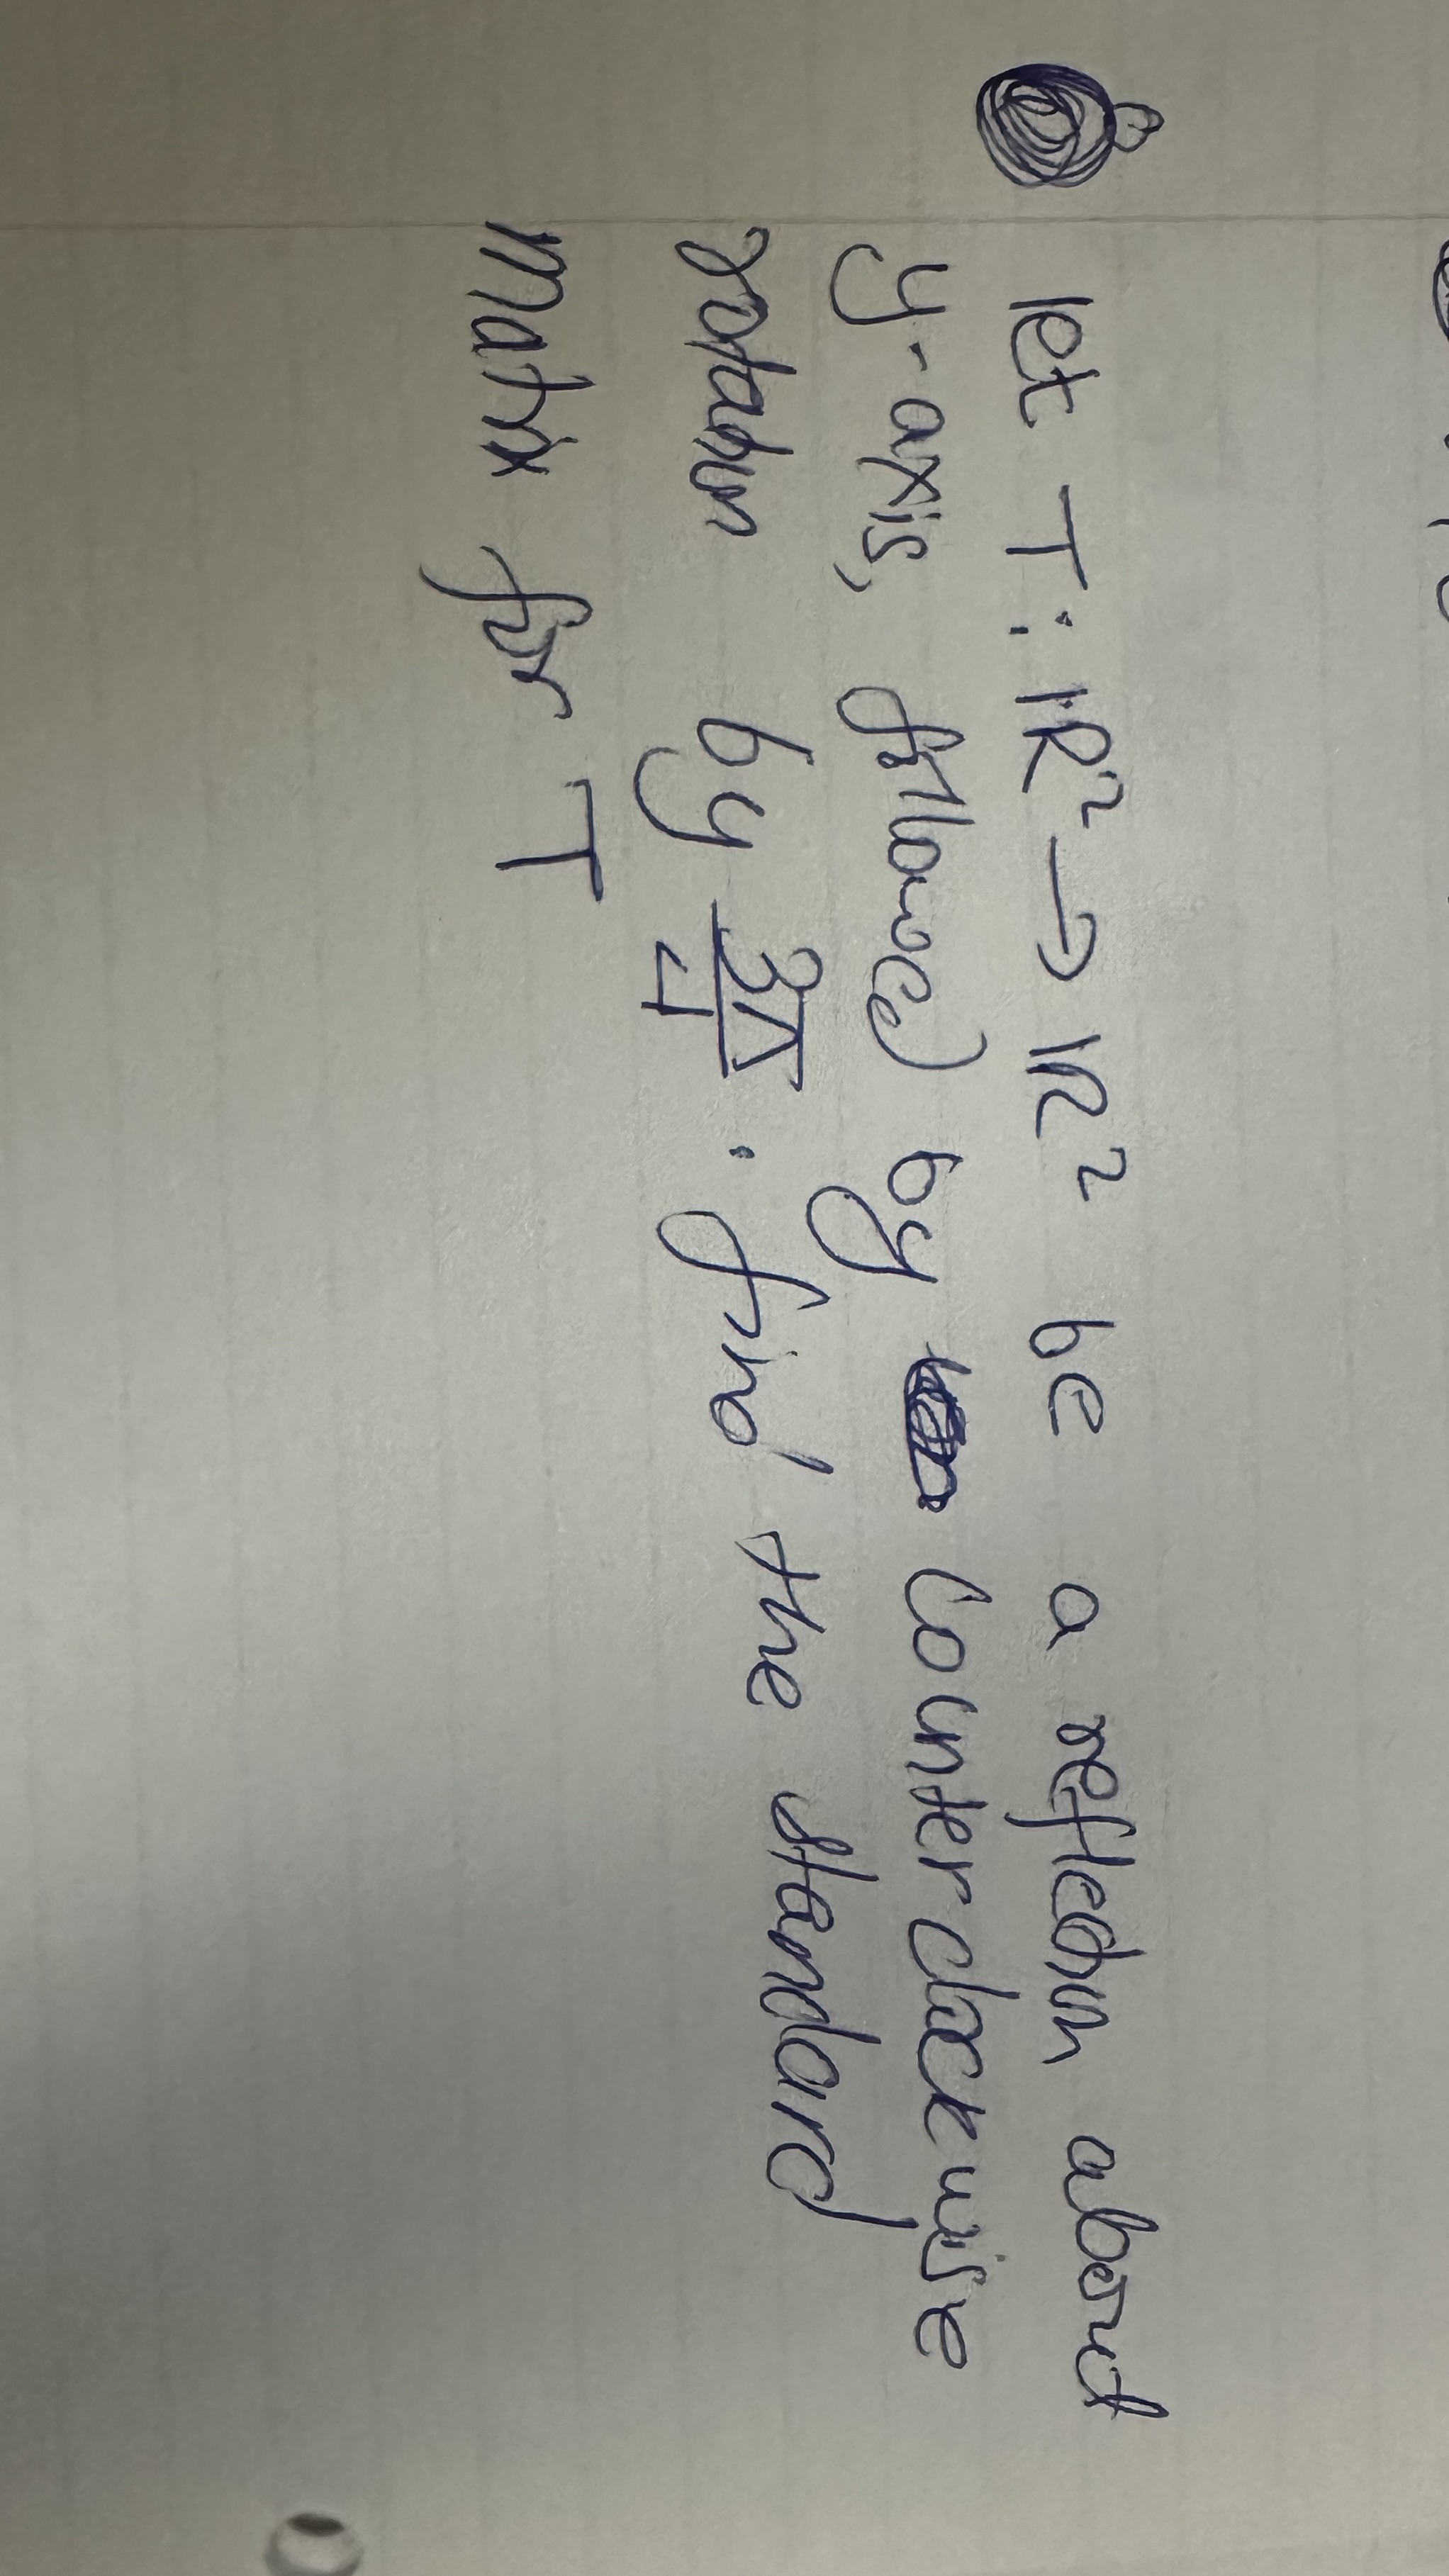 let T: ℝ² → ℝ² be a reflection about
y-axis, followed by counterclockwise
rotation by 3π/4. find the standard
matrix for T